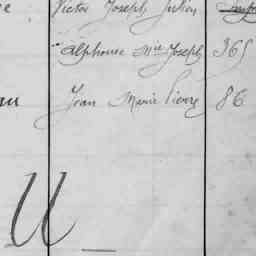 Victor Joseph Julien
Alphonse Mie Joseph 365
Jean Marie Pierre 86
U